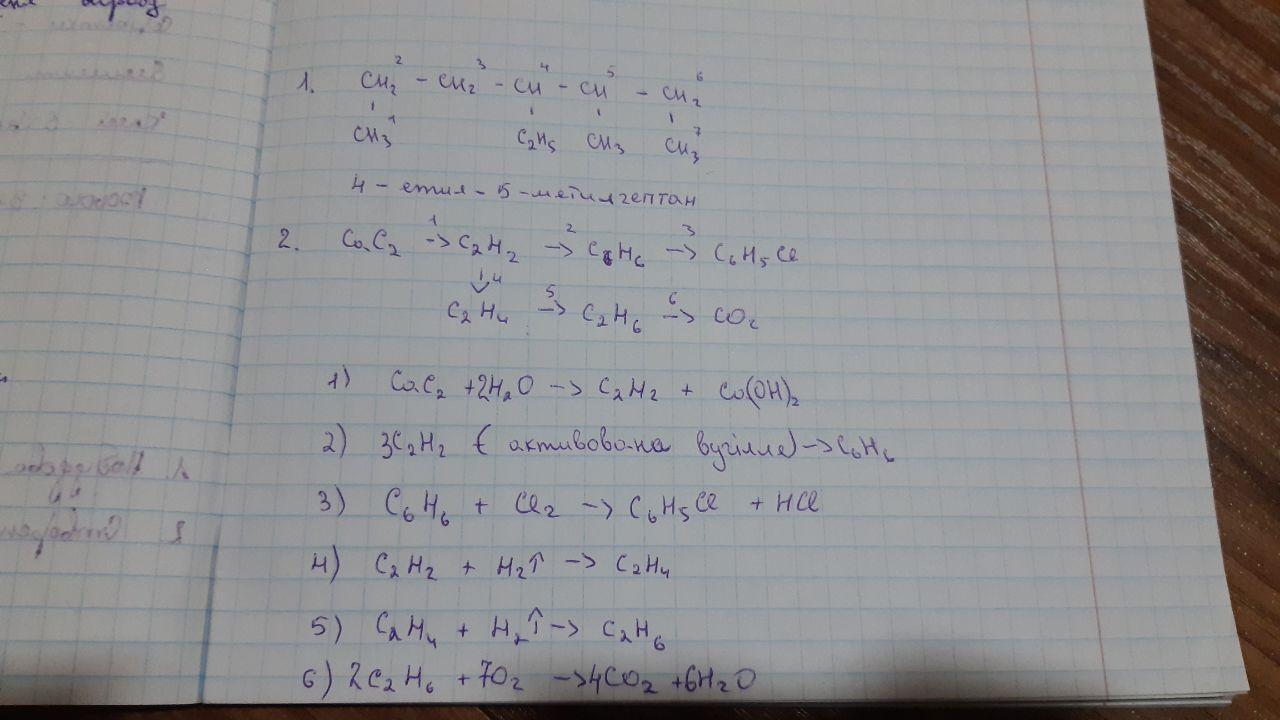 1. CH₂² - CH₂³ - CH⁴ - CH⁵ - CH₂⁶
CH₃¹ C₂H₅ CH₃ CH₃⁷
4 - етил - 5 - метилгептан
2. CaC₂ →¹ C₂H₂ →² C₆H₆ →³ C₆H₅Cl
↓4
C₂H₄ →⁵ C₂H₆ →⁶ CO₂
1) CaC₂ + 2H₂O → C₂H₂ + Ca(OH)₂
2) 3C₂H₂ (активована вугілля) → C₆H₆
3) C₆H₆ + Cl₂ → C₆H₅Cl + HCl
4) C₂H₂ + H₂↑ → C₂H₄
5) C₂H₄ + H₂↑ → C₂H₆
6) 2C₂H₆ + 7O₂ → 4CO₂ + 6H₂O